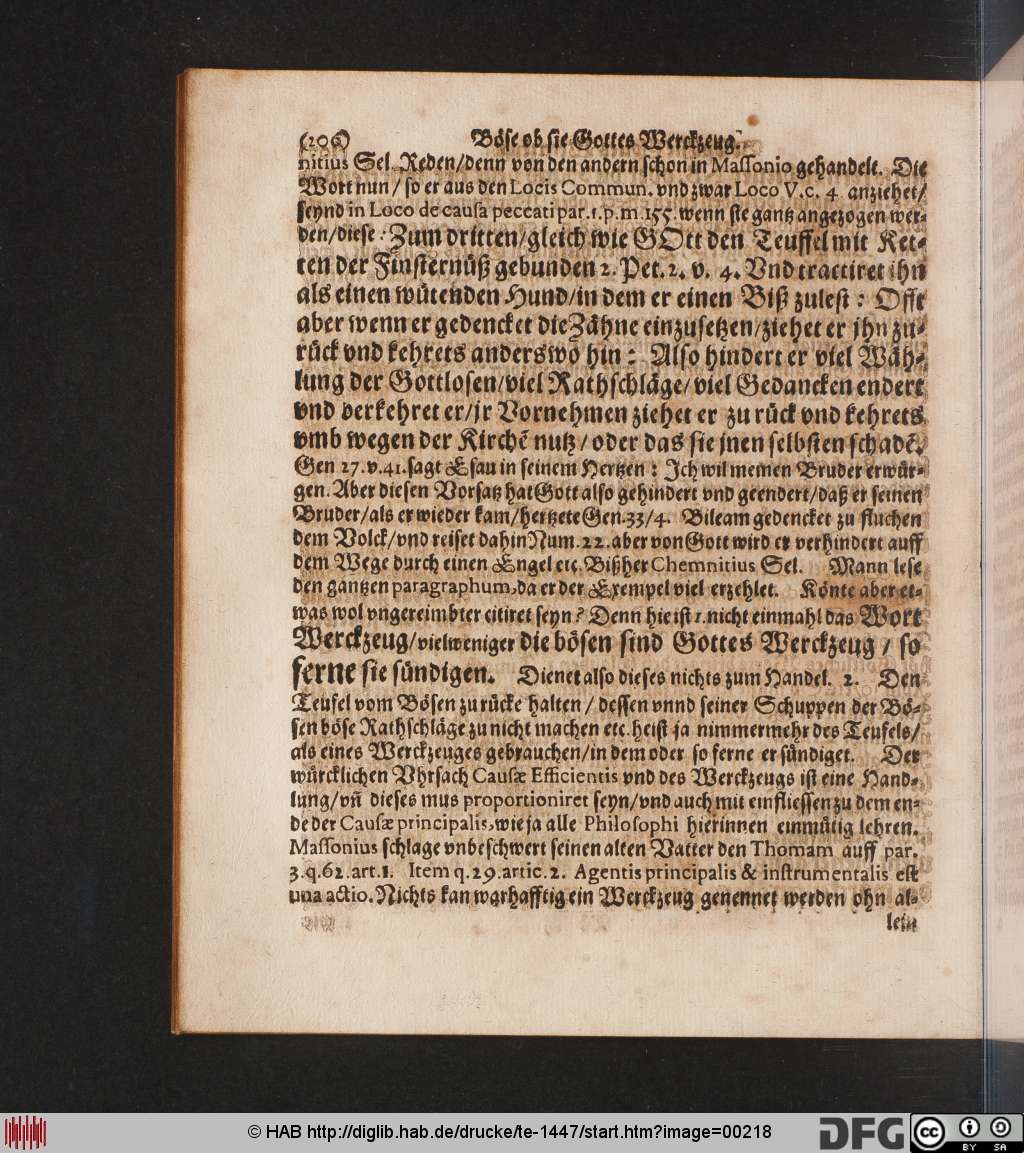 (206) Böse ob sie Gottes Werckzeug.
nitius Sel. Reden/denn von den andern schon in Massonio gehandelt. Die
Wort nun/ so er aus den Locis Commun. vnd zwar Loco V.c. 4 anziehet/
seynd in Loco de causa peccati par.1.p.m.155.wenn sie gantz angezogen wer-
den/diese: Zum dritten/gleich wie GOtt den Teuffel mit Ket-
ten der Finsternüß gebunden 2. Pet.2. v. 4. Vnd tractiret ihn
als einen wütenden Hund/in dem er einen Biß zulest: Offt
aber wenn er gedencket die Zähne einzusetzen/ziehet er jhn zu-
rück vnd kehrets anderswo hin: Also hindert er viel Wäh-
lung der Gottlosen/viel Rathschläge/viel Gedancken endert
vnd verkehret er/jr Vornehmen ziehet er zu rück vnd kehrets
vmb wegen der Kirchẽ nutz/oder das sie jnen selbsten schadẽ.
Gen 27.v.41.sagt Esau in seinem Hertzen: Ich wil meinen Bruder erwür-
gen. Aber diesen Vorsatz hat Gott also gehindert vnd geendert/daß er seinen
Bruder/als er wieder kam/hertzete Gen.33/4. Bileam gedencket zu fluchen
dem Volck/vnd reiset dahin Num.22.aber von Gott wird er verhindert auff
dem Wege durch einen Engel etc. Bißher Chemnitius Sel. Mann lese
den gantzen paragraphum, da er der Exempel viel erzehlet. Könte aber et-
was wol vngereimbter citiret seyn? Denn hie ist 1.nicht einmahl das Wort
Werckzeug/vielweniger die bösen sind Gottes Werckzeug / so
ferne sie sündigen. Dienet also dieses nichts zum Handel. 2. Den
Teufel vom Bösen zu rücke halten/ dessen vnnd seiner Schuppen der Bö-
sen böse Rathschläge zu nicht machen etc. heist ja nimmermehr des Teufels/
als eines Werckzeuges gebrauchen/in dem oder so ferne er sündiget. Der
würcklichen Vhrsach Causæ Efficientis vnd des Werckzeugs ist eine Hand-
lung/vñ dieses mus proportioniret seyn/vnd auch mit einfliessen zu dem en-
de der Causæ principalis, wie ja alle Philosophi hierinnen einmütig lehren.
Massonius schlage vnbeschwert seinen alten Vatter den Thomam auff par.
3.q.62.art.1. Item q.29.artic.2. Agentis principalis & instrumentalis est
una actio. Nichts kan warhafftig ein Werckzeug genennet werden ohn al-
lein
© HAB http://diglib.hab.de/drucke/te-1447/start.htm?image=00218
DFG
cc
BY SA